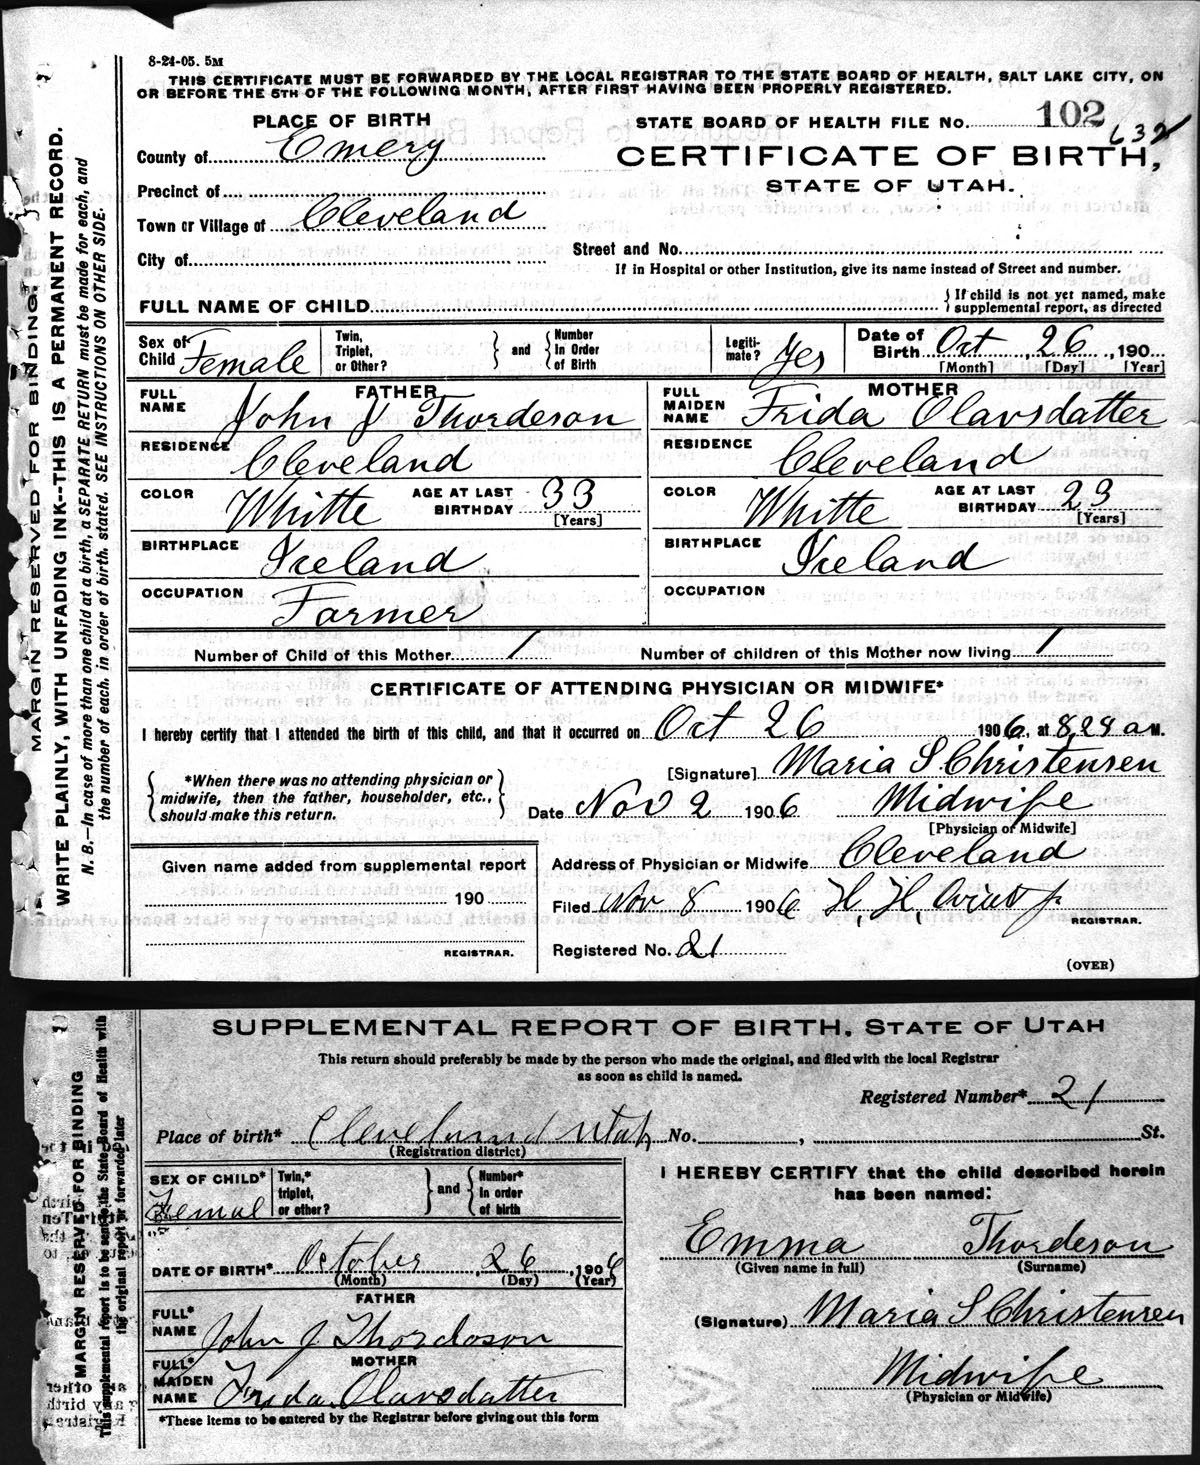 8-24-05. 5M
THIS CERTIFICATE MUST BE FORWARDED BY THE LOCAL REGISTRAR TO THE STATE BOARD OF HEALTH, SALT LAKE CITY, ON
OR BEFORE THE 5TH OF THE FOLLOWING MONTH, AFTER FIRST HAVING BEEN PROPERLY REGISTERED.
PLACE OF BIRTH
STATE BOARD OF HEALTH FILE No. 102
632
County of Emery
CERTIFICATE OF BIRTH,
STATE OF UTAH.
Precinct of
Town or Village of Cleveland
Street and No.
City of
If in Hospital or other Institution, give its name instead of Street and number.
FULL NAME OF CHILD
{If child is not yet named, make
supplemental report, as directed
Sex of Child Female
Twin, Triplet, or Other?
} and {
Number In Order of Birth
Legiti-mate? Yes
Date of Birth Oct, 26, 190
[Month] [Day] [Year]
FATHER
FULL NAME John J Thordeson
MOTHER
FULL MAIDEN NAME Frida Olavsdatter
RESIDENCE Cleveland
RESIDENCE Cleveland
COLOR Whitte AGE AT LAST BIRTHDAY 33 [Years]
COLOR Whitte AGE AT LAST BIRTHDAY 23 [Years]
BIRTHPLACE Iceland
BIRTHPLACE Iceland
OCCUPATION Farmer
OCCUPATION
Number of Child of this Mother 1 Number of children of this Mother now living 1
CERTIFICATE OF ATTENDING PHYSICIAN OR MIDWIFE*
I hereby certify that I attended the birth of this child, and that it occurred on Oct 26 1906, at 8,29 a M.
{*When there was no attending physician or
midwife, then the father, householder, etc.,
should make this return.}
[Signature] Maria S Christensen
Date Nov 2 1906 Midwife
[Physician or Midwife]
Given name added from supplemental report
190
REGISTRAR.
Address of Physician or Midwife Cleveland
Filed Nov 8 1906 H. H. Oviatt Jr
REGISTRAR.
Registered No. 21
(OVER)
MARGIN RESERVED FOR BINDING.
WRITE PLAINLY, WITH UNFADING INK--THIS IS A PERMANENT RECORD.
N. B.—In case of more than one child at a birth, a SEPARATE RETURN must be made for each, and
the number of each, in order of birth, stated. SEE INSTRUCTIONS ON OTHER SIDE.
SUPPLEMENTAL REPORT OF BIRTH, STATE OF UTAH
This return should preferably be made by the person who made the original, and filed with the local Registrar
as soon as child is named.
Registered Number* 21
Place of birth* Cleveland Utah No. , St.
(Registration district)
SEX OF CHILD* Femal
Twin,* triplet, or other?
} and {
Number* In order of birth
DATE OF BIRTH* October, 26, 1906
(Month) (Day) (Year)
FATHER
FULL* NAME John J Thordoson
MOTHER
FULL* MAIDEN NAME Frida Olavsdatter
*These items to be entered by the Registrar before giving out this form
I HEREBY CERTIFY that the child described herein
has been named:
Emma Thordeson
(Given name in full) (Surname)
(Signature) Maria S Christensen
Midwife
(Physician or Midwife)
MARGIN RESERVED FOR BINDING
This supplemental report is to be sent to the State Board of Health with
the original report or forwarded later